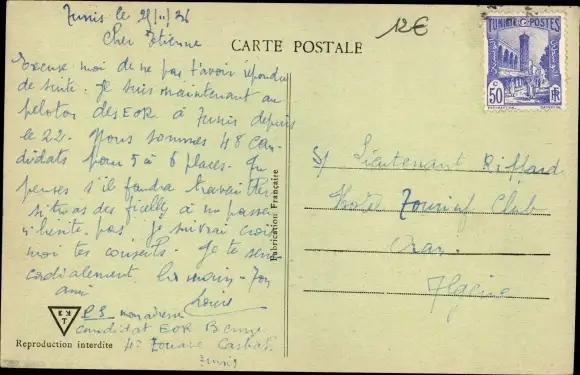 Tunis le 25/11/36
Cher Etienne
Excuse moi de ne pas t'avoir répondu
de suite. Je suis maintenant au
peloton des EOR à Tunis depuis
le 22. Nous sommes 48 can-
didats pour 5 à 6 places. Tu
penses s'il faudra travailler
si tu as des ficelles à me passer
n'hésite pas je suivrai crois
moi tes conseils. Je te serre
cordialement la main. Ton
ami
PS mon adresse
candidat EOR
4e Zouave Casbah
Tunis
EKT
Reproduction interdite
12€
CARTE POSTALE
Fabrication Française
TUNISIE POSTES
50 c RF
S/ Lieutenant Riffard
Hotel Touring Club
Oran
Algérie